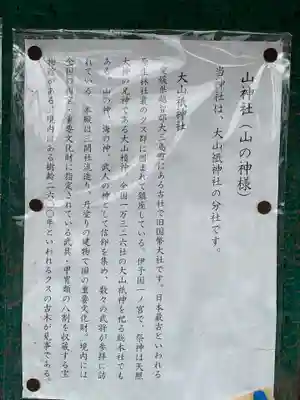 山神社(山の神様)
当神社は、大山祇神社の分社です。
大山祇神社
愛媛県越智郡大三島町にある古社で旧国幣大社です。日本最古といわれる
原生林社叢のクス群に囲まれて鎮座している。伊予国一ノ宮で、祭神は天照
大神の兄神である大山積神、全国一万三二六社の大山祇神を祀る総本社でも
ある。山の神、海の神、武人の神として信仰を集め、数々の武将が参拝に訪
れている。本殿は三間社流造り、丹塗りの建物で国の重要文化財。境内には
全国の国宝・重要文化財に指定されている武具・甲冑類の八割を収蔵する宝
物館がある。境内にある樹齢二六〇〇年といわれるクスの古木が見事である。